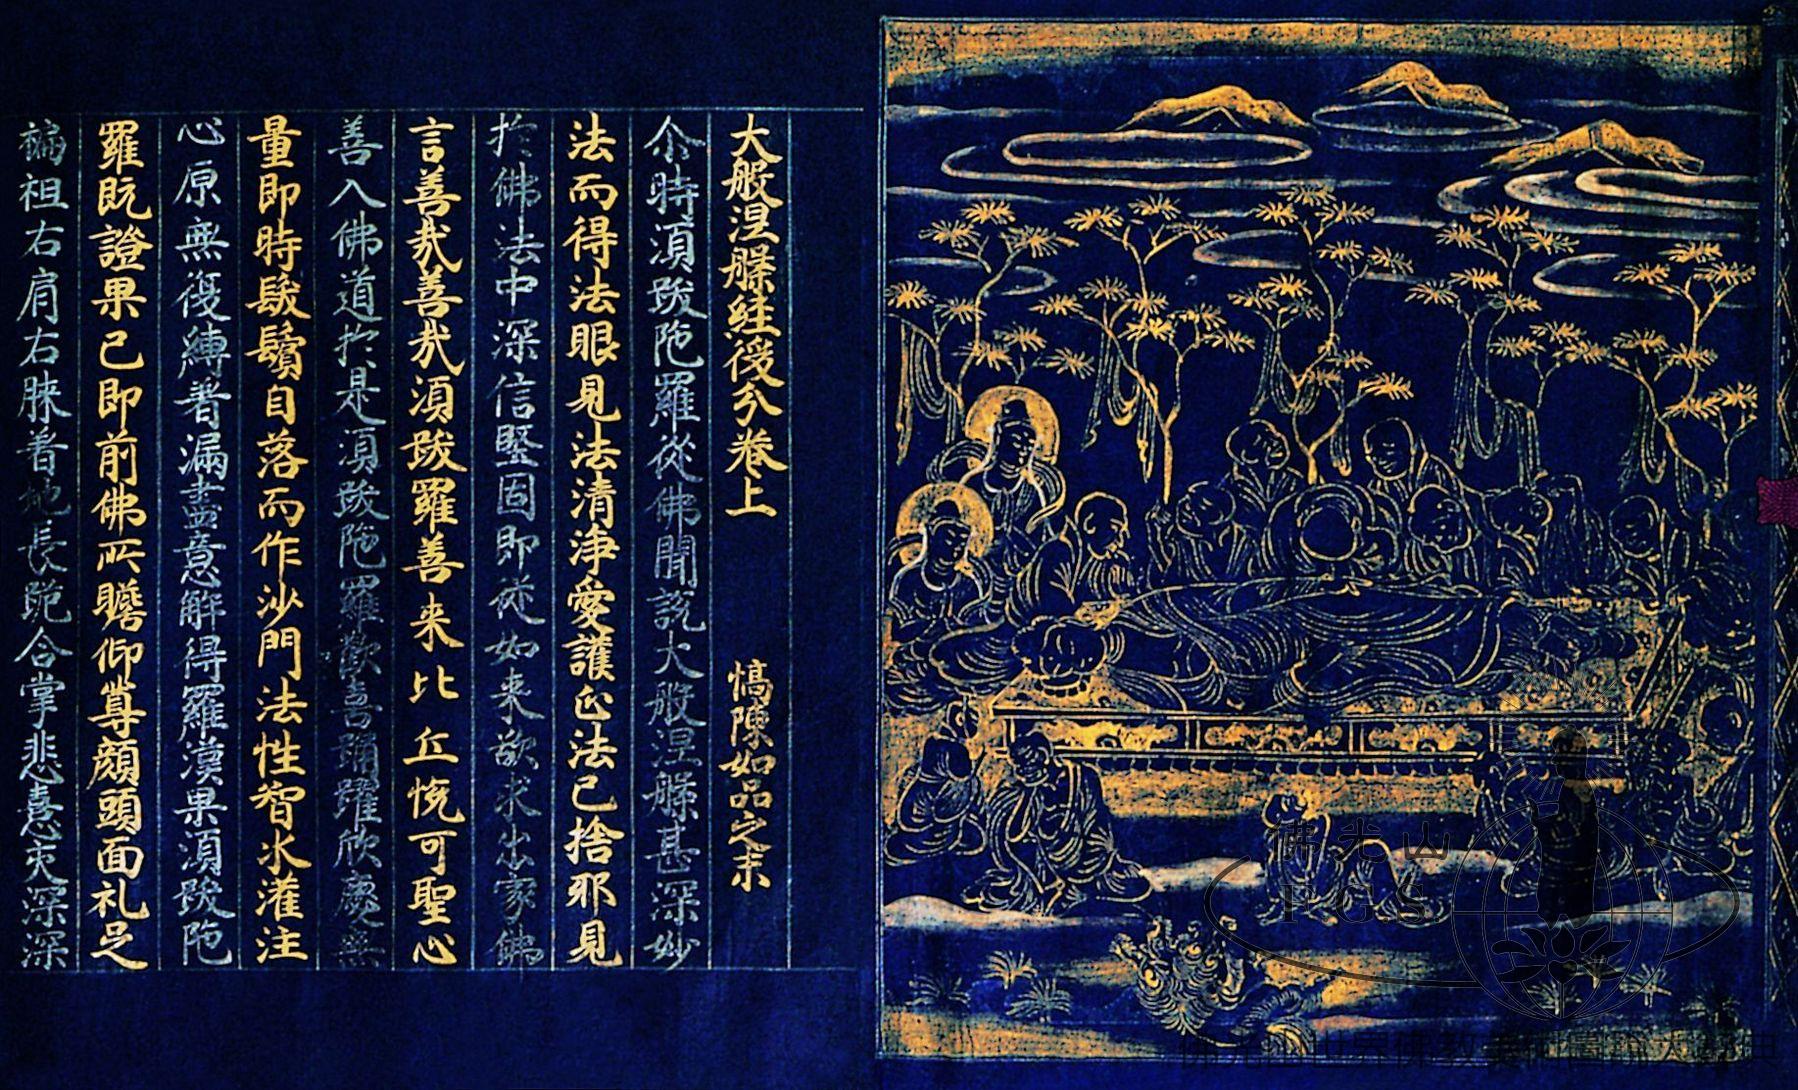 大般涅槃経後分卷上 憍陳如品之末
尒時湏跋陁羅從佛聞說大般涅槃甚深妙
法而得法眼見法清淨愛護正法已捨邪見
扵佛法中深信堅固即從如来欲求出家佛
言善㢤善㢤湏跋羅善来比丘恱可聖心
善入佛道扵是湏跋陁羅歡喜踊躍欣慶無
量即時䰂鬚自落而作沙門法性智水灌注
心原無復縛著漏盡意解得羅漢果湏跋陁
羅既證果已即前佛所瞻仰尊顔頭面礼足
褊袒右肩右膝著地長跪合掌悲喜交深深
佛光山
FGS